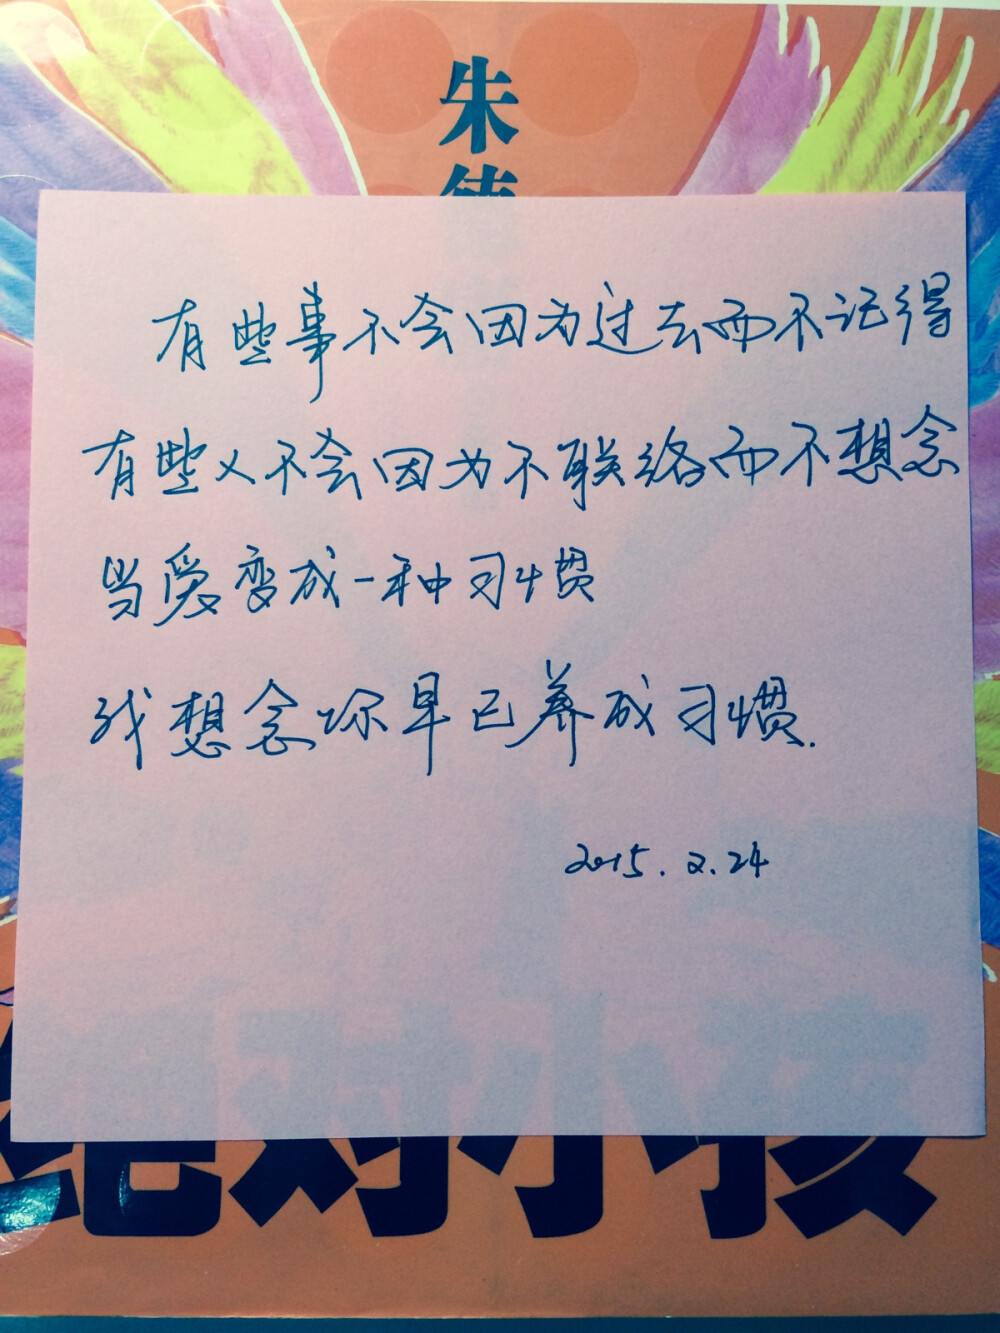 朱
有些事不会因为过去而不记得
有些人不会因为不联络而不想念
当爱变成一种习惯
我想念你早已养成习惯.
2015.2.24
绝对小孩